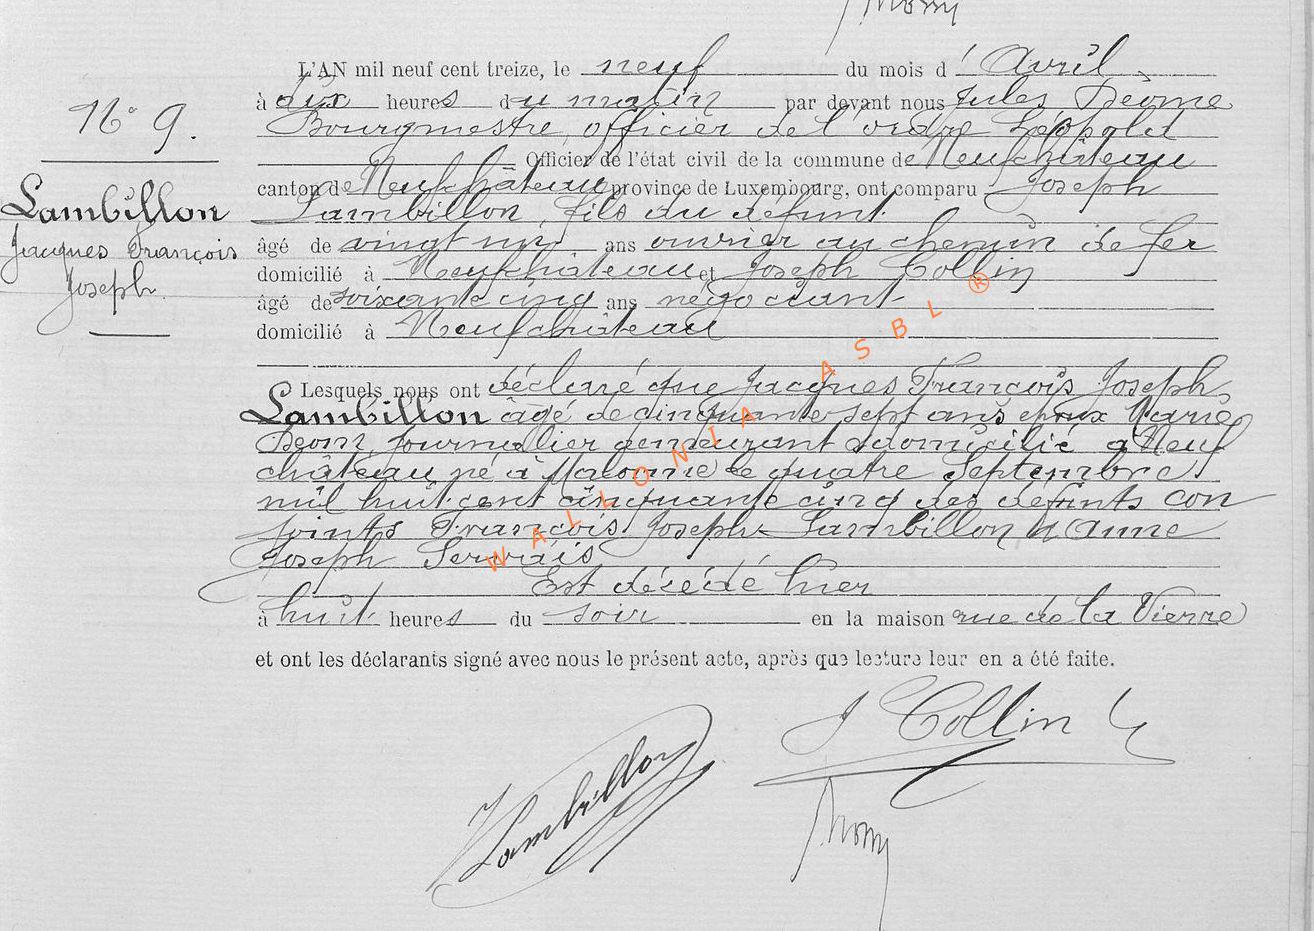 L'AN mil neuf cent treize, le neuf du mois d' Avril
N° 9.
à dix heures du matin par devant nous Jules
Bourgmestre, officier de l'ordre Léopold
Officier de l'état civil de la commune de Neufchâteau
canton de Neufchâteau province de Luxembourg, ont comparu Joseph
Lambillon
Jacques François
Joseph
Lambillon, fils du défunt
âgé de vingt ans ouvrier au chemin de fer
domicilié à Neufchâteau et Joseph Collin
âgé de soixante cinq ans négociant
domicilié à Neufchâteau
Lesquels nous ont déclaré que Jacques François Joseph
Lambillon âgé de cinquante sept ans époux Marie
journalier demeurant domicilié à Neuf
château né à Malonne le quatre Septembre
mil huit cent cinquante cinq des défunts con
joints François Joseph Lambillon & Anne
Joseph Servais
Est décédé hier
à huit heures du soir en la maison rue de la Vierre
et ont les déclarants signé avec nous le présent acte, après que lecture leur en a été faite.
J Collin
Lambillon
WALLONIA ASBL ®